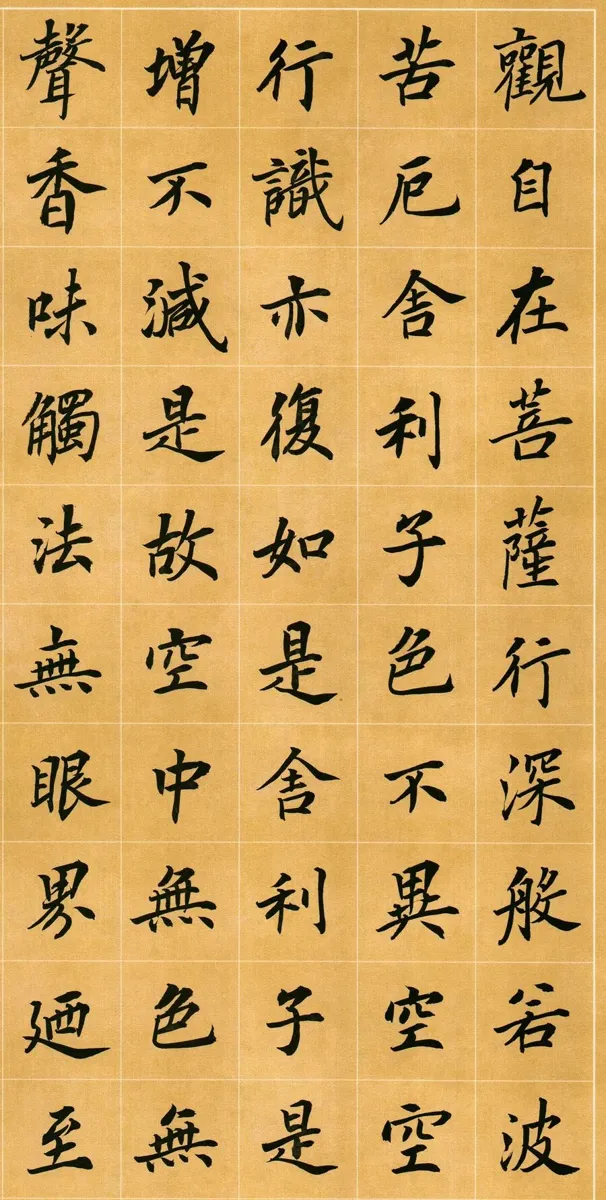 觀自在菩薩行深般若波
苦厄舍利子色不異空空
行識亦復如是舍利子是
增不減是故空中無色無
聲香味觸法無眼界廼至